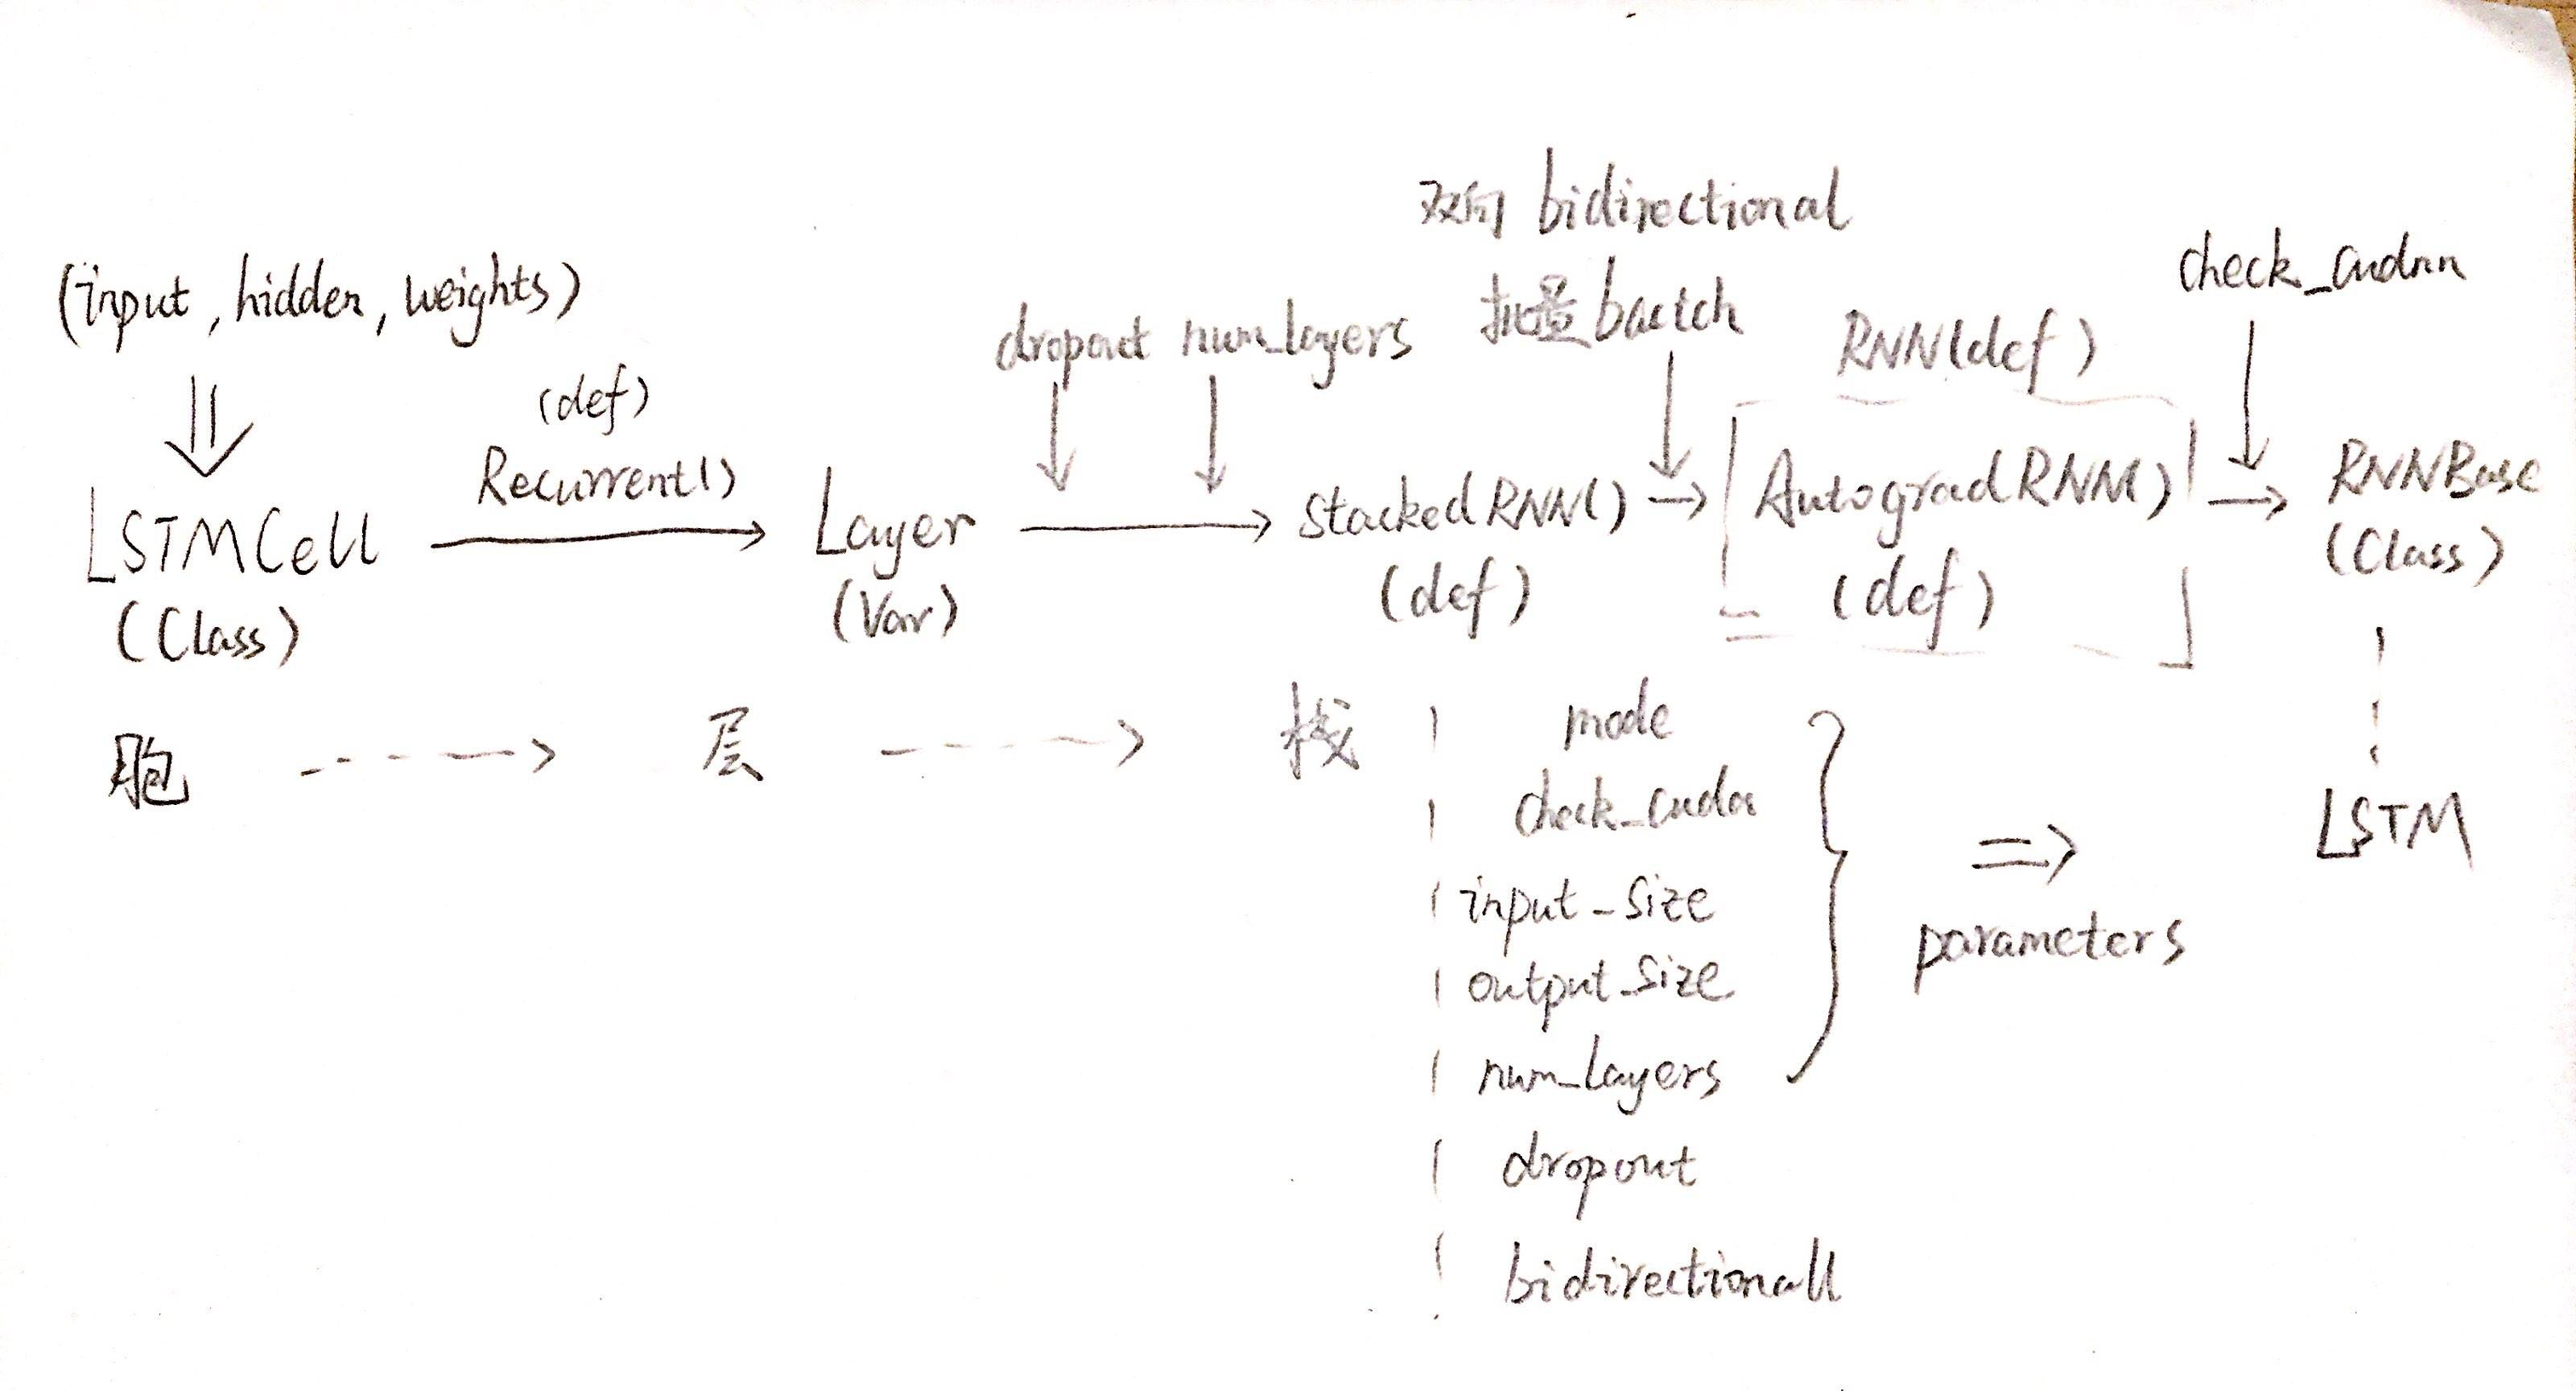 双向 bidirectional
批量 bactch
check_cudnn
(input, hidden, weights)
dropout num_layers
RNN(def)
(def)
Recurrent()
LSTMCell
(Class)
Layer
(Var)
StackedRNN()
(def)
AutogradRNN()
(def)
RNNBase
(Class)
胞
层
栈
mode
check_cudnn
input_size
output_size
num_layers
dropout
bidirectionall
parameters
LSTM